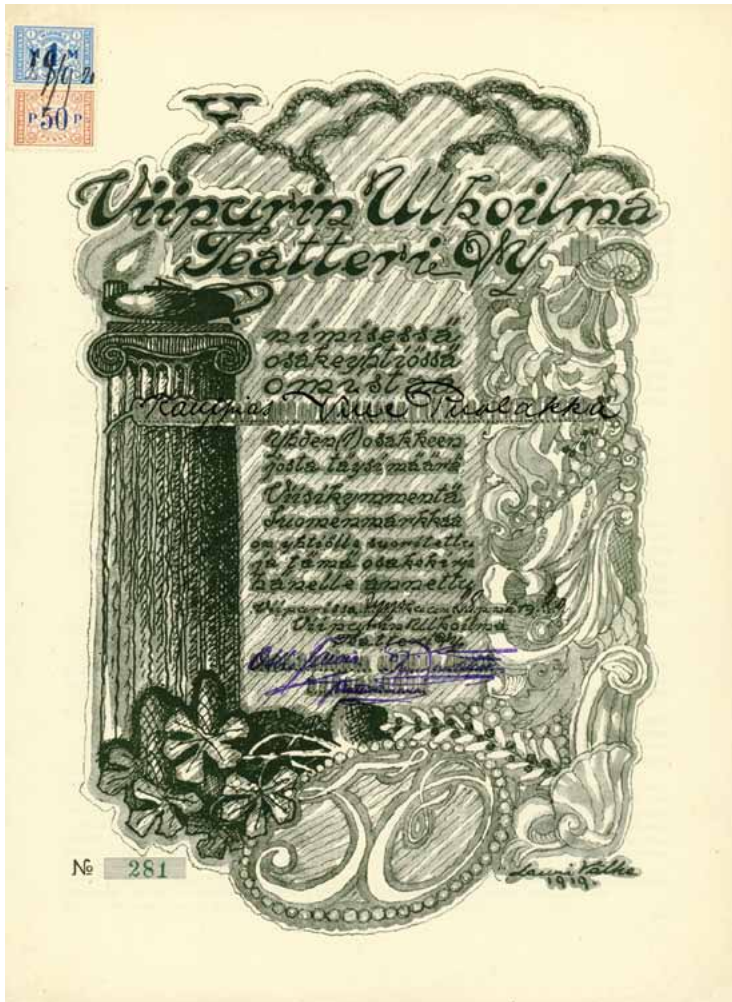 1
M M
P 50 P
Viipurin Ulkoilma
Teatteri O/Y
nimisessä
osakeyhtiössä
omistaa
Kauppias Puolakka
Yhden (1) osakkeen
josta täysimäärä
Viisikymmentä
Suomenmarkkaa
on yhtiölle suoritettu
ja tämä osakekirja
hänelle annettu
Viipurissa kuun p:nä 19
Viipurin Ulkoilma
Teatteri O/Y
50
№ 281
Lauri Välke
1919.